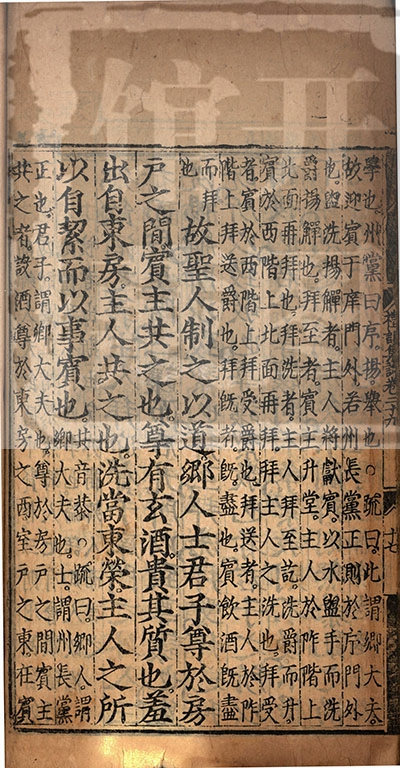 禮記集說卷三十九
十七
學也州黨曰序揚舉也○疏曰此謂鄉大夫
故迎賓于庠門外若州長黨正則於序門外
也盥洗揚觶者主人將獻賓以水盥手而洗
爵揚觶也拜至者賓主升堂主人於阼階上
北面再拜也拜洗者主人拜至訖洗爵而升
賓於西階上北面再拜拜主人之洗也拜受
者賓於西階上拜受爵也拜送者主人於阼
階上拜送爵也拜既者既盡也賓飲酒既盡
而拜
也
故聖人制之以道鄉人士君子尊於房
戶之間賓主共之也尊有玄酒貴其質也羞
出自東房主人共之也洗當東榮主人之所
以自絜而以事賓也
共音恭○疏曰鄉人謂
鄉大夫也士謂州長黨
正也君子謂鄉大夫也尊於房戶之間賓主
共之者設酒尊於東房之西室戶之東在賓